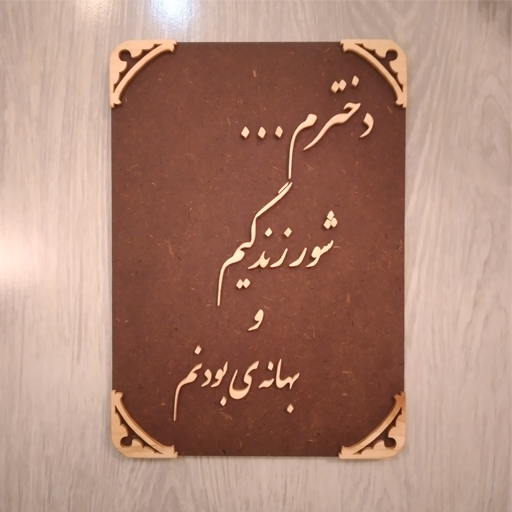 دخترم...
شور زندگیم
و
بهانه‌ی بودنم